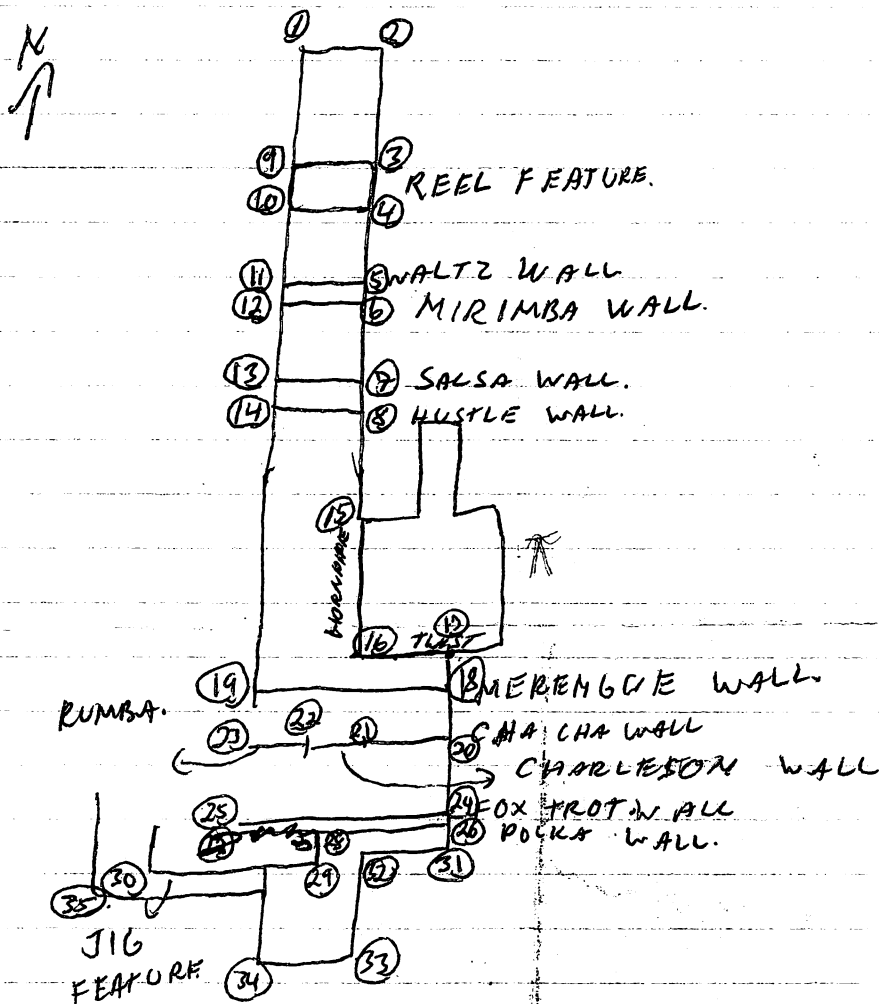 N
1 2
9 3
REEL FEATURE.
10 4
11 5 WALTZ WALL
12 6 MIRIMBA WALL.
13 7 SALSA WALL.
14 8 HUSTLE WALL.
15
HORNPIPE
16 TWIST 17
19 18 MERENGUE WALL.
RUMBA.
23 22 21 20 CHA CHA WALL
CHARLESTON WALL
25 24 FOX TROT WALL
28 26 POLKA WALL.
30 29 32 31
35
JIG
FEATURE
34 33